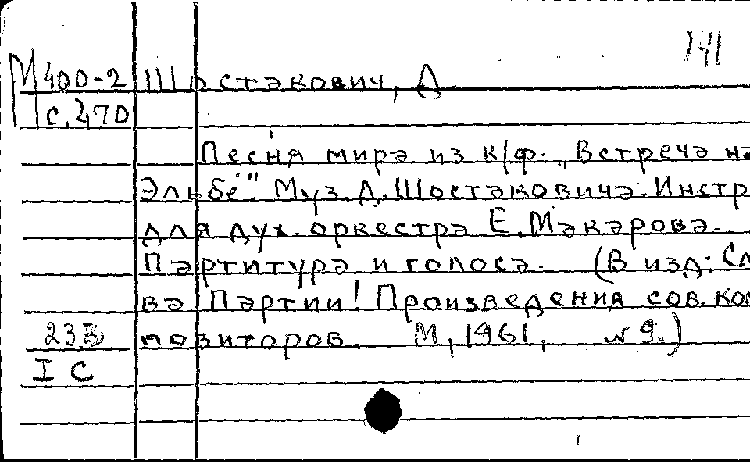 141
М 400-2 Шостакович, Д
с. 470
Песня мира из к/ф. „Встреча на
Эльбе". Муз. Д. Шостаковича. Инстр
для дух. оркестра Е. Макарова.
Партитура и голоса. (В изд: Сла
ва Партии! Произведения сов. ком
23В позиторов. М, 1961, №9.)
I С